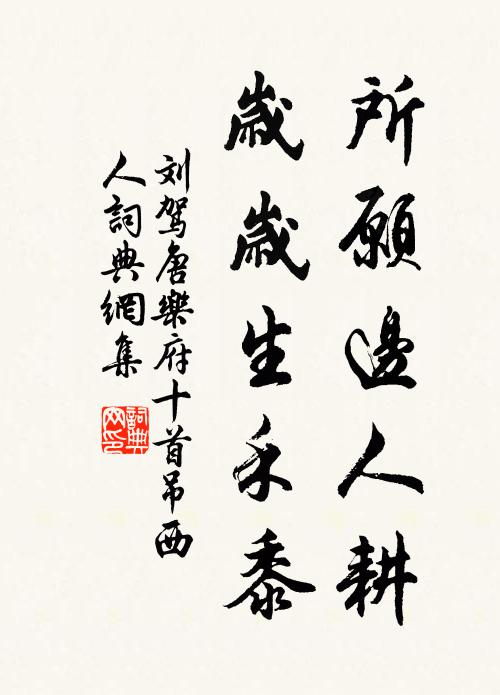 所願邊人耕
歲歲生禾黍
刘駕唐樂府十首吊西
人詞典網集
詞典
网印